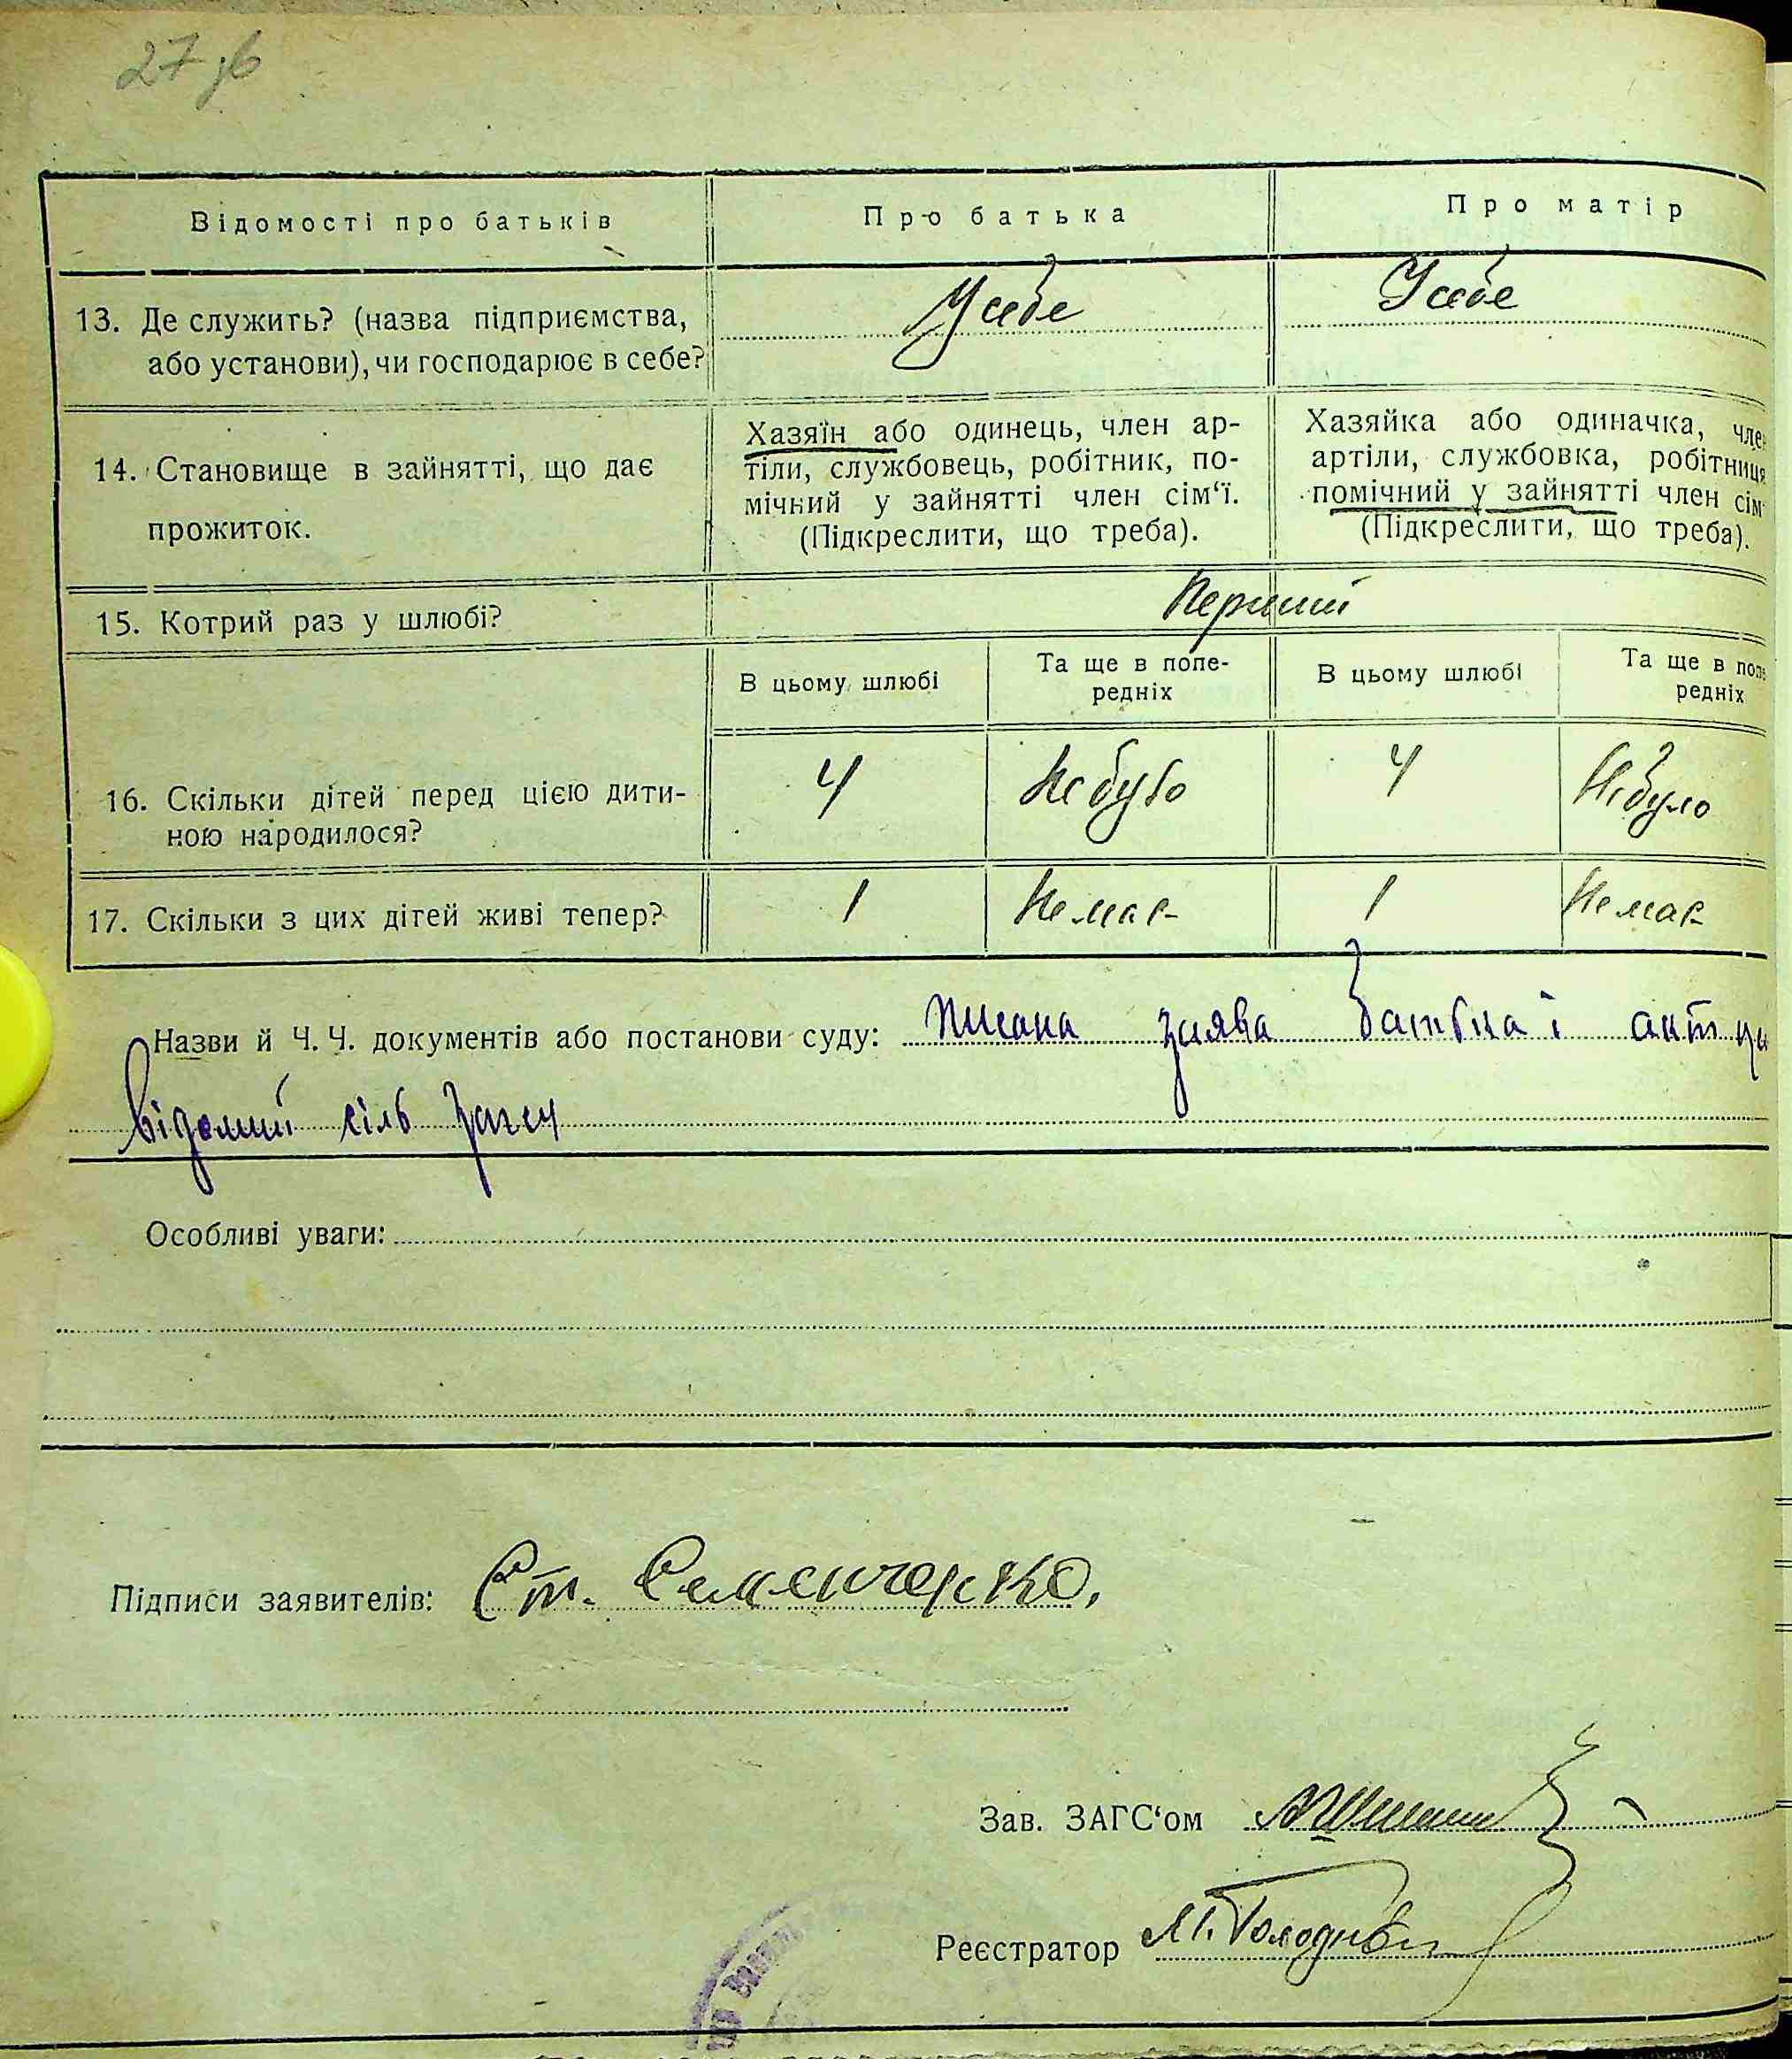 27 зб
Відомості про батьків
Про батька
Про матір
13. Де служить? (назва підприємства,
або установи), чи господарює в себе?
У себе
У себе
14. Становище в зайнятті, що дає
прожиток.
Хазяїн або одинець, член ар-
тіли, службовець, робітник, по-
мічний у зайнятті член сім‘ї.
(Підкреслити, що треба).
Хазяйка або одиначка, чле
артіли, службовка, робітниця
помічний у зайнятті член сім‘
(Підкреслити, що треба).
15. Котрий раз у шлюбі?
Перший
В цьому шлюбі
Та ще в попе-
редніх
В цьому шлюбі
Та ще в попе
редніх
16. Скільки дітей перед цією дити-
ною народилося?
4
Не було
4
Не було
17. Скільки з цих дітей живі тепер?
1
Немає
1
Немає
Назви й Ч. Ч. документів або постанови суду: Писана заява батька і акт
відомий сіль загсу
Особливі уваги:
Підписи заявителів: Ст. Семенченко,
Зав. ЗАГС‘ом
Реєстратор